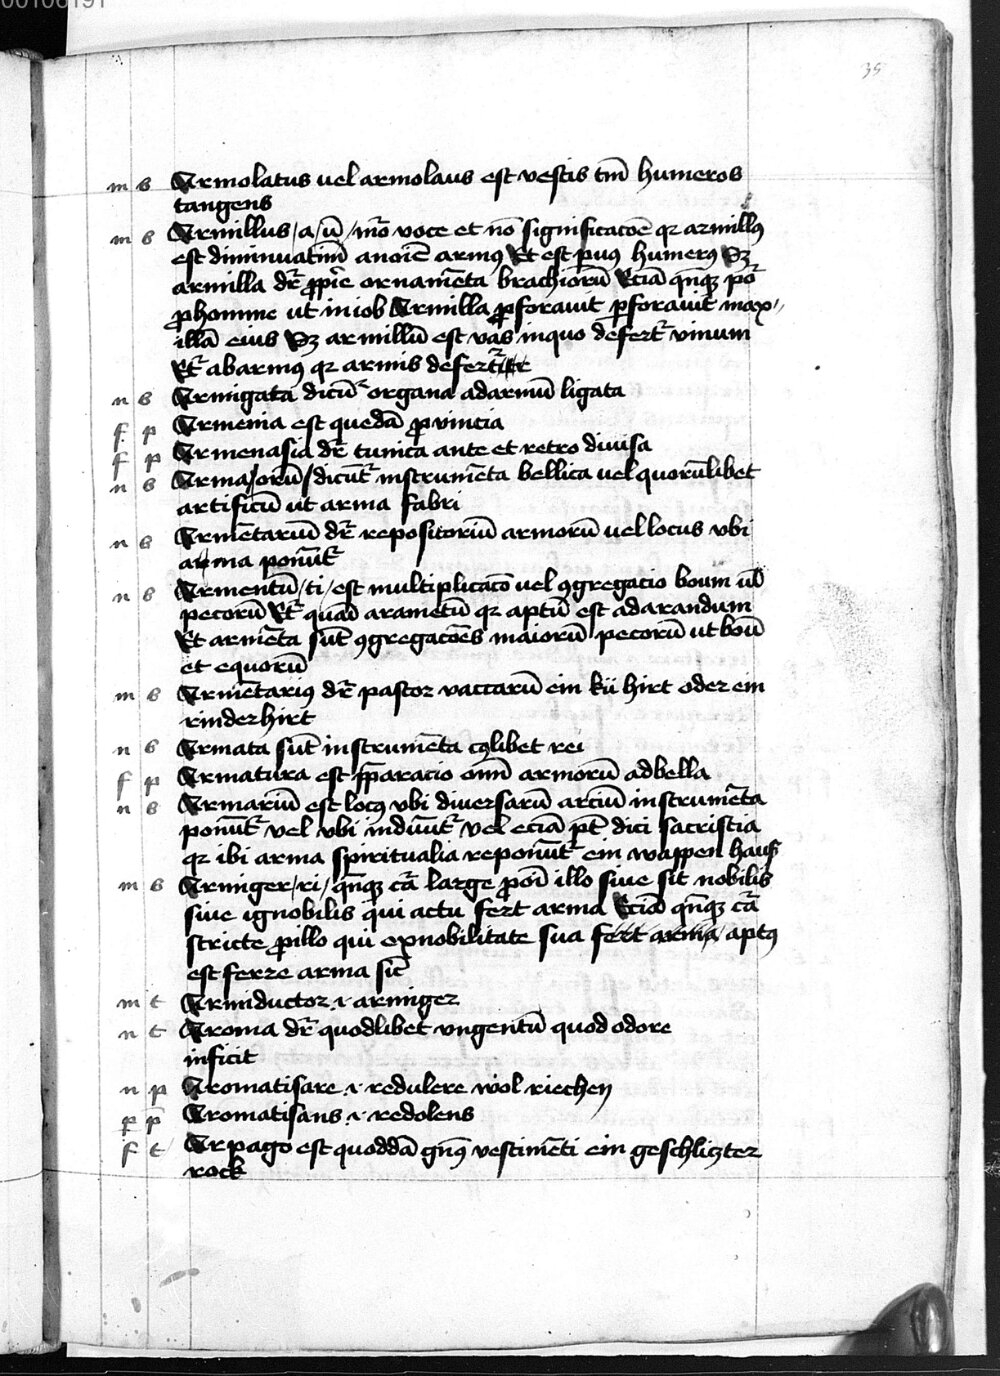 00106191
35
m s Armolatus uel armolaus est vestis tm̄ humeros
tangens
m s Armillus / a / ū / mͦo voce et nō significacōe qr armillꝰ
est diminuatiuū anoīe armꝰ Et est p̱uus humerꝰ Sꝫ
armilla dr̄ ꝓpͥe ornamēta brachiorū Eciā qn̄qꝫ pōr
ꝓ homine ut in iob Armilla ꝑforauit ꝑforauit max⸗
illā eius Sꝫ armillū est vas inquo defert᷑ vinum
Et᷑ abarmꝰ qr armis defert᷑
n s Armigata dicūt᷑ organa adarmū ligata
f p Armenia est quedā ꝓvincia
f p Armenasia dr̄ tunica ante et retro diuisa
n s Arma / orū / dicūt᷑ instrumēta bellica uel quorūlibet
artificū ut arma fabri
n s Armētariū dr̄ repositoriū armorū uel locus vbi
arma ponūt᷑
n s Armentū / ti / est multiplicacō uel ꝯgregacio boum ul̄
pecorū Et᷑ quasi arametū qr aptū est adarandum
Et armēta sūt ꝯgregacōes maiorū pecorū ut boū
et equorū
m s Armētariꝰ dr̄ pastor vaccarū ein kü hirt oder ein
rinderhirt
n s Armata sūt instrumēta cꝰlibet rei
f p Armatura est p̄paracio oīm armorū adbella
n s Armariū est locꝰ vbi diuersarū arciū instrumēta
ponūt᷑ vel vbi induūt᷑ vel eciā pt̄ dici sacristia
qr ibi arma spiritualia reponūt᷑ ein wappen hauß
m s Armiger / ri / qn̄qꝫ cā large ponī illo siue sit nobilis
siue ignobilis qui actu fert arma Eciā qn̄qꝫ cā
stricte ꝓ illo qui exnobilitate sua fert arma / aptꝰ
est ferre arma sic̄
m t Armiductor .i. armiger
n t Aroma dr̄ quodlibet vngentū quod odore
inficit
n p Aromatisare .i. redulere wol riechen
p p̄ Aromatisans .i. redolens
f t Arpago est quoddā gn̄ꝰ vestimēti ein geschliczter
rock